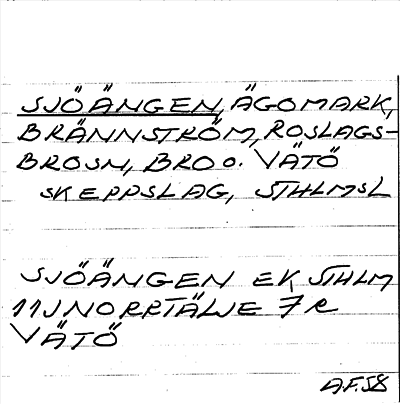 SJÖÄNGEN, ÄGOMARK,
BRÄNNSTRÖM, ROSLAGS-
BROSN, BRO O. VÄTÖ
SKEPPSLAG, STHLMSL
SJÖÄNGEN EK STHLM
11J NORRTÄLJE 7 e
VÄTÖ
A.F. 58